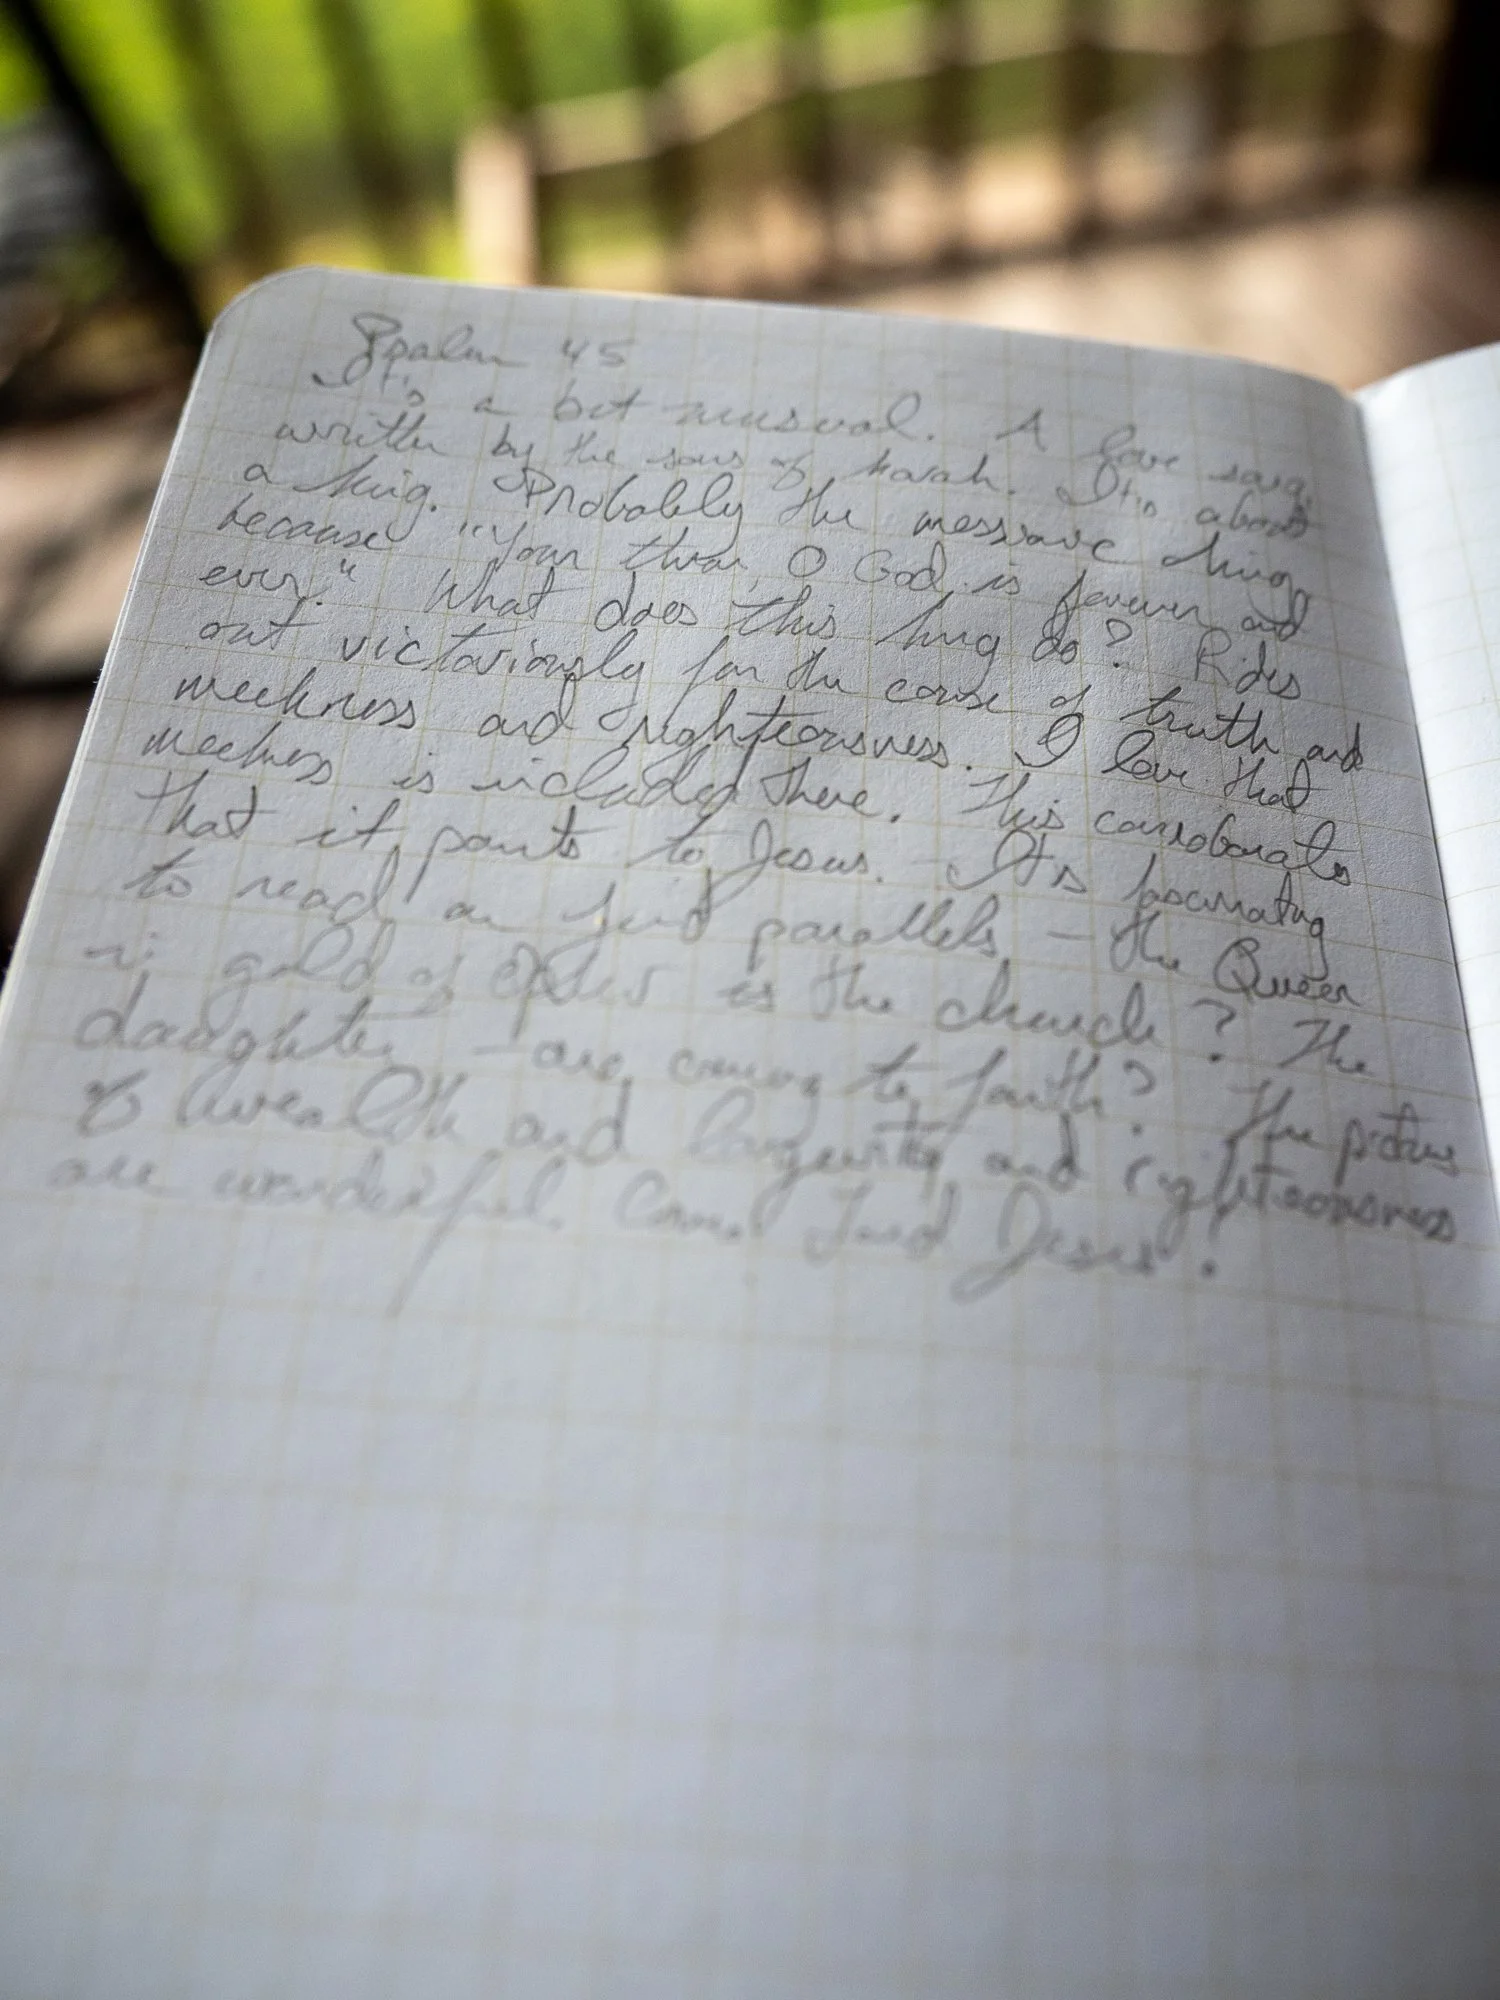 Psalm 45
It's a bit unusual. A love song,
written by the sons of Korah. It's about
a king. Probably the messianic king
because "Your throne, O God is forever and
ever." What does this king do? Rides
out victoriously for the cause of truth and
meekness and righteousness. I love that
meekness is included there. This corroborates
that it points to Jesus. - It's fascinating
to read and find parallels - the Queen
in gold of Ophir is the church? The
daughters - are coming to faith? The pictures
of wealth and longevity and righteousness
are wonderful. Come Lord Jesus!